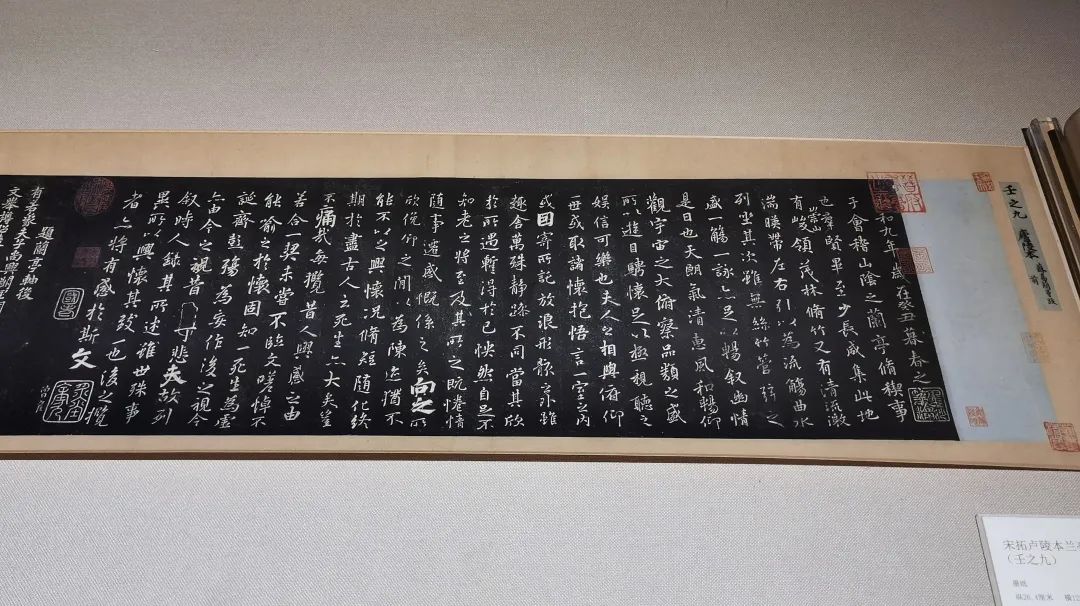 壬之九
盧陵本
和九年歲在癸丑暮春之
于會稽山陰之蘭亭脩稧事
也羣賢畢至少長咸集此地
有崇山峻領茂林脩竹又有清流激
湍暎帶左右引以為流觴曲水
列坐其次雖無絲竹管弦之
盛一觴一詠亦足以暢叙幽情
是日也天朗氣清惠風和暢仰
觀宇宙之大俯察品類之盛
所以遊目騁懷足以極視聽之
娛信可樂也夫人之相與俯仰
一世或取諸懷抱悟言一室之內
或因寄所託放浪形骸之外雖
趣舍萬殊靜躁不同當其欣
於所遇暫得於己怏然自足不
知老之將至及其所之既惓情
隨事遷感慨係之矣向之所
欣俛仰之間以為陳迹猶不
能不以之興懷況脩短隨化終
期於盡古人云死生亦大矣豈
不痛哉每攬昔人興感之由
若合一契未嘗不臨文嗟悼不
能喻之於懷固知一死生為虛
誕齊彭殤為妄作後之視今
亦由今之視昔悲夫故列
敘時人錄其所述雖世殊事
異所以興懷其致一也後之攬
者亦將有感於斯文
題蘭亭軸後
宋拓卢陵本兰
（壬之九）
墨纸
纵26.4厘米 横12